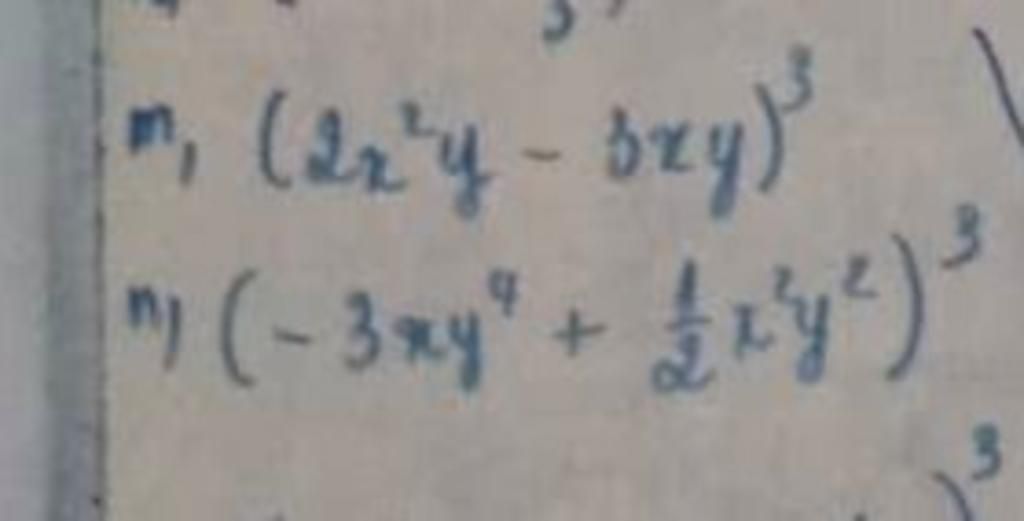 m, (2x²y - 3xy)³
n, (-3xy⁴ + 1/2 x²y²)³
)³